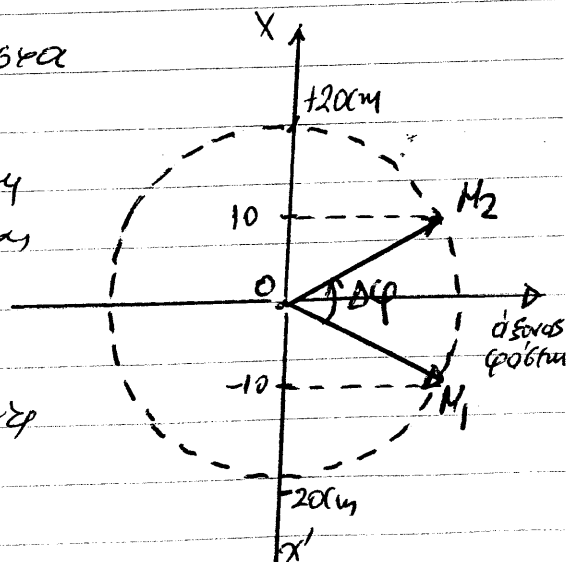 X
+20cm
10
M2
O
Δφ
άξονας
φάσεων
-10
M1
-20cm
x'